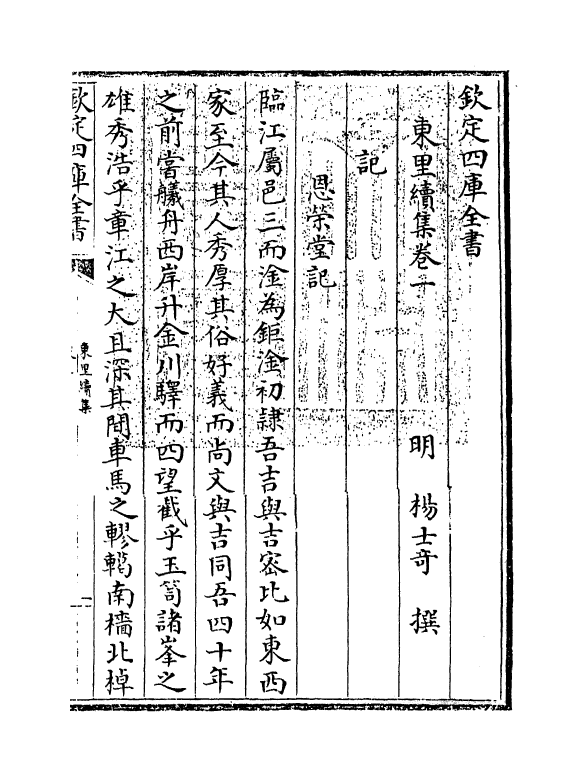 欽定四庫全書
東里續集卷一
明 楊士奇 撰
記
恩榮堂記
臨江屬邑三而淦為鉅淦初隸吾吉與吉密比如東西
家至今其人秀厚其俗好義而尚文與吉同吾四十年
之前嘗艤舟西岸升金川驛而四望截乎玉笥諸峯之
雄秀浩乎章江之大且深其間車馬之轇轕南檣北棹
欽定四庫全書
東里續集
一